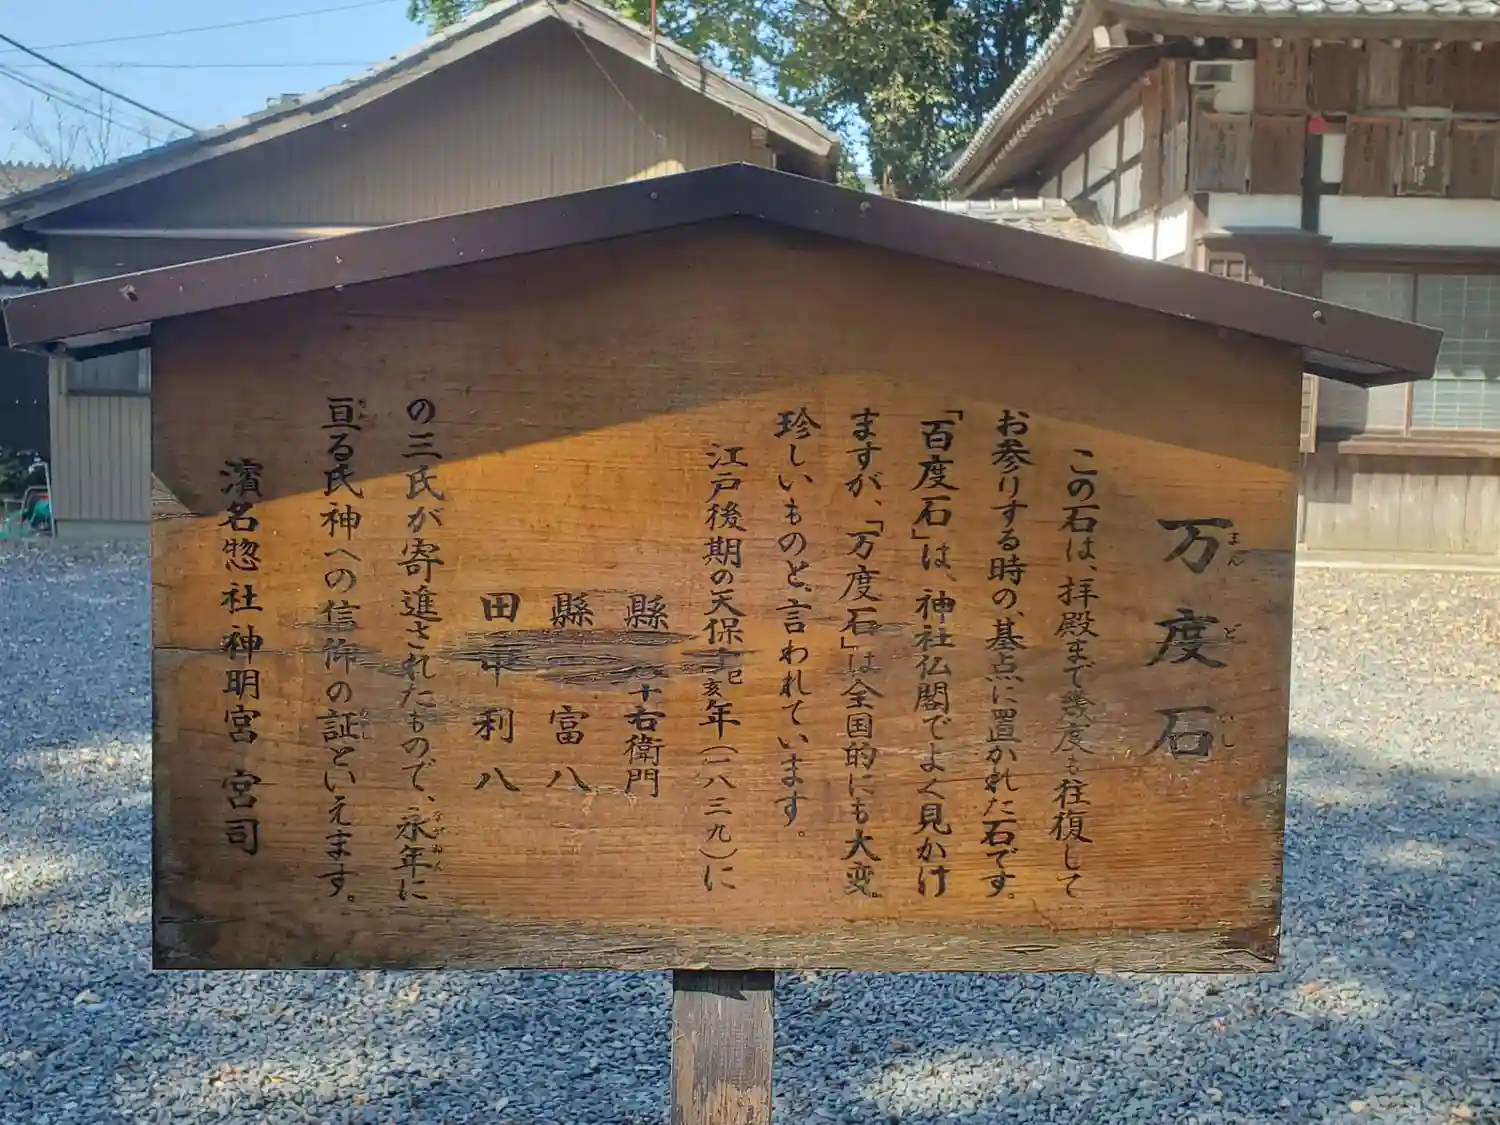 万度石
まんどいし
この石は、拝殿まで幾度も往復して
お参りする時の、基点に置かれた石です。
「百度石」は、神社仏閣でよく見かけ
ますが、「万度石」は全国的にも大変
珍しいものと、言われています。
江戸後期の天保己亥年(一八三九)に
縣 十右衛門
縣 富八
田中利八
の三氏が寄進されたもので、永年に
亘る氏神への信仰の証といえます。
濱名惣社神明宮 宮司